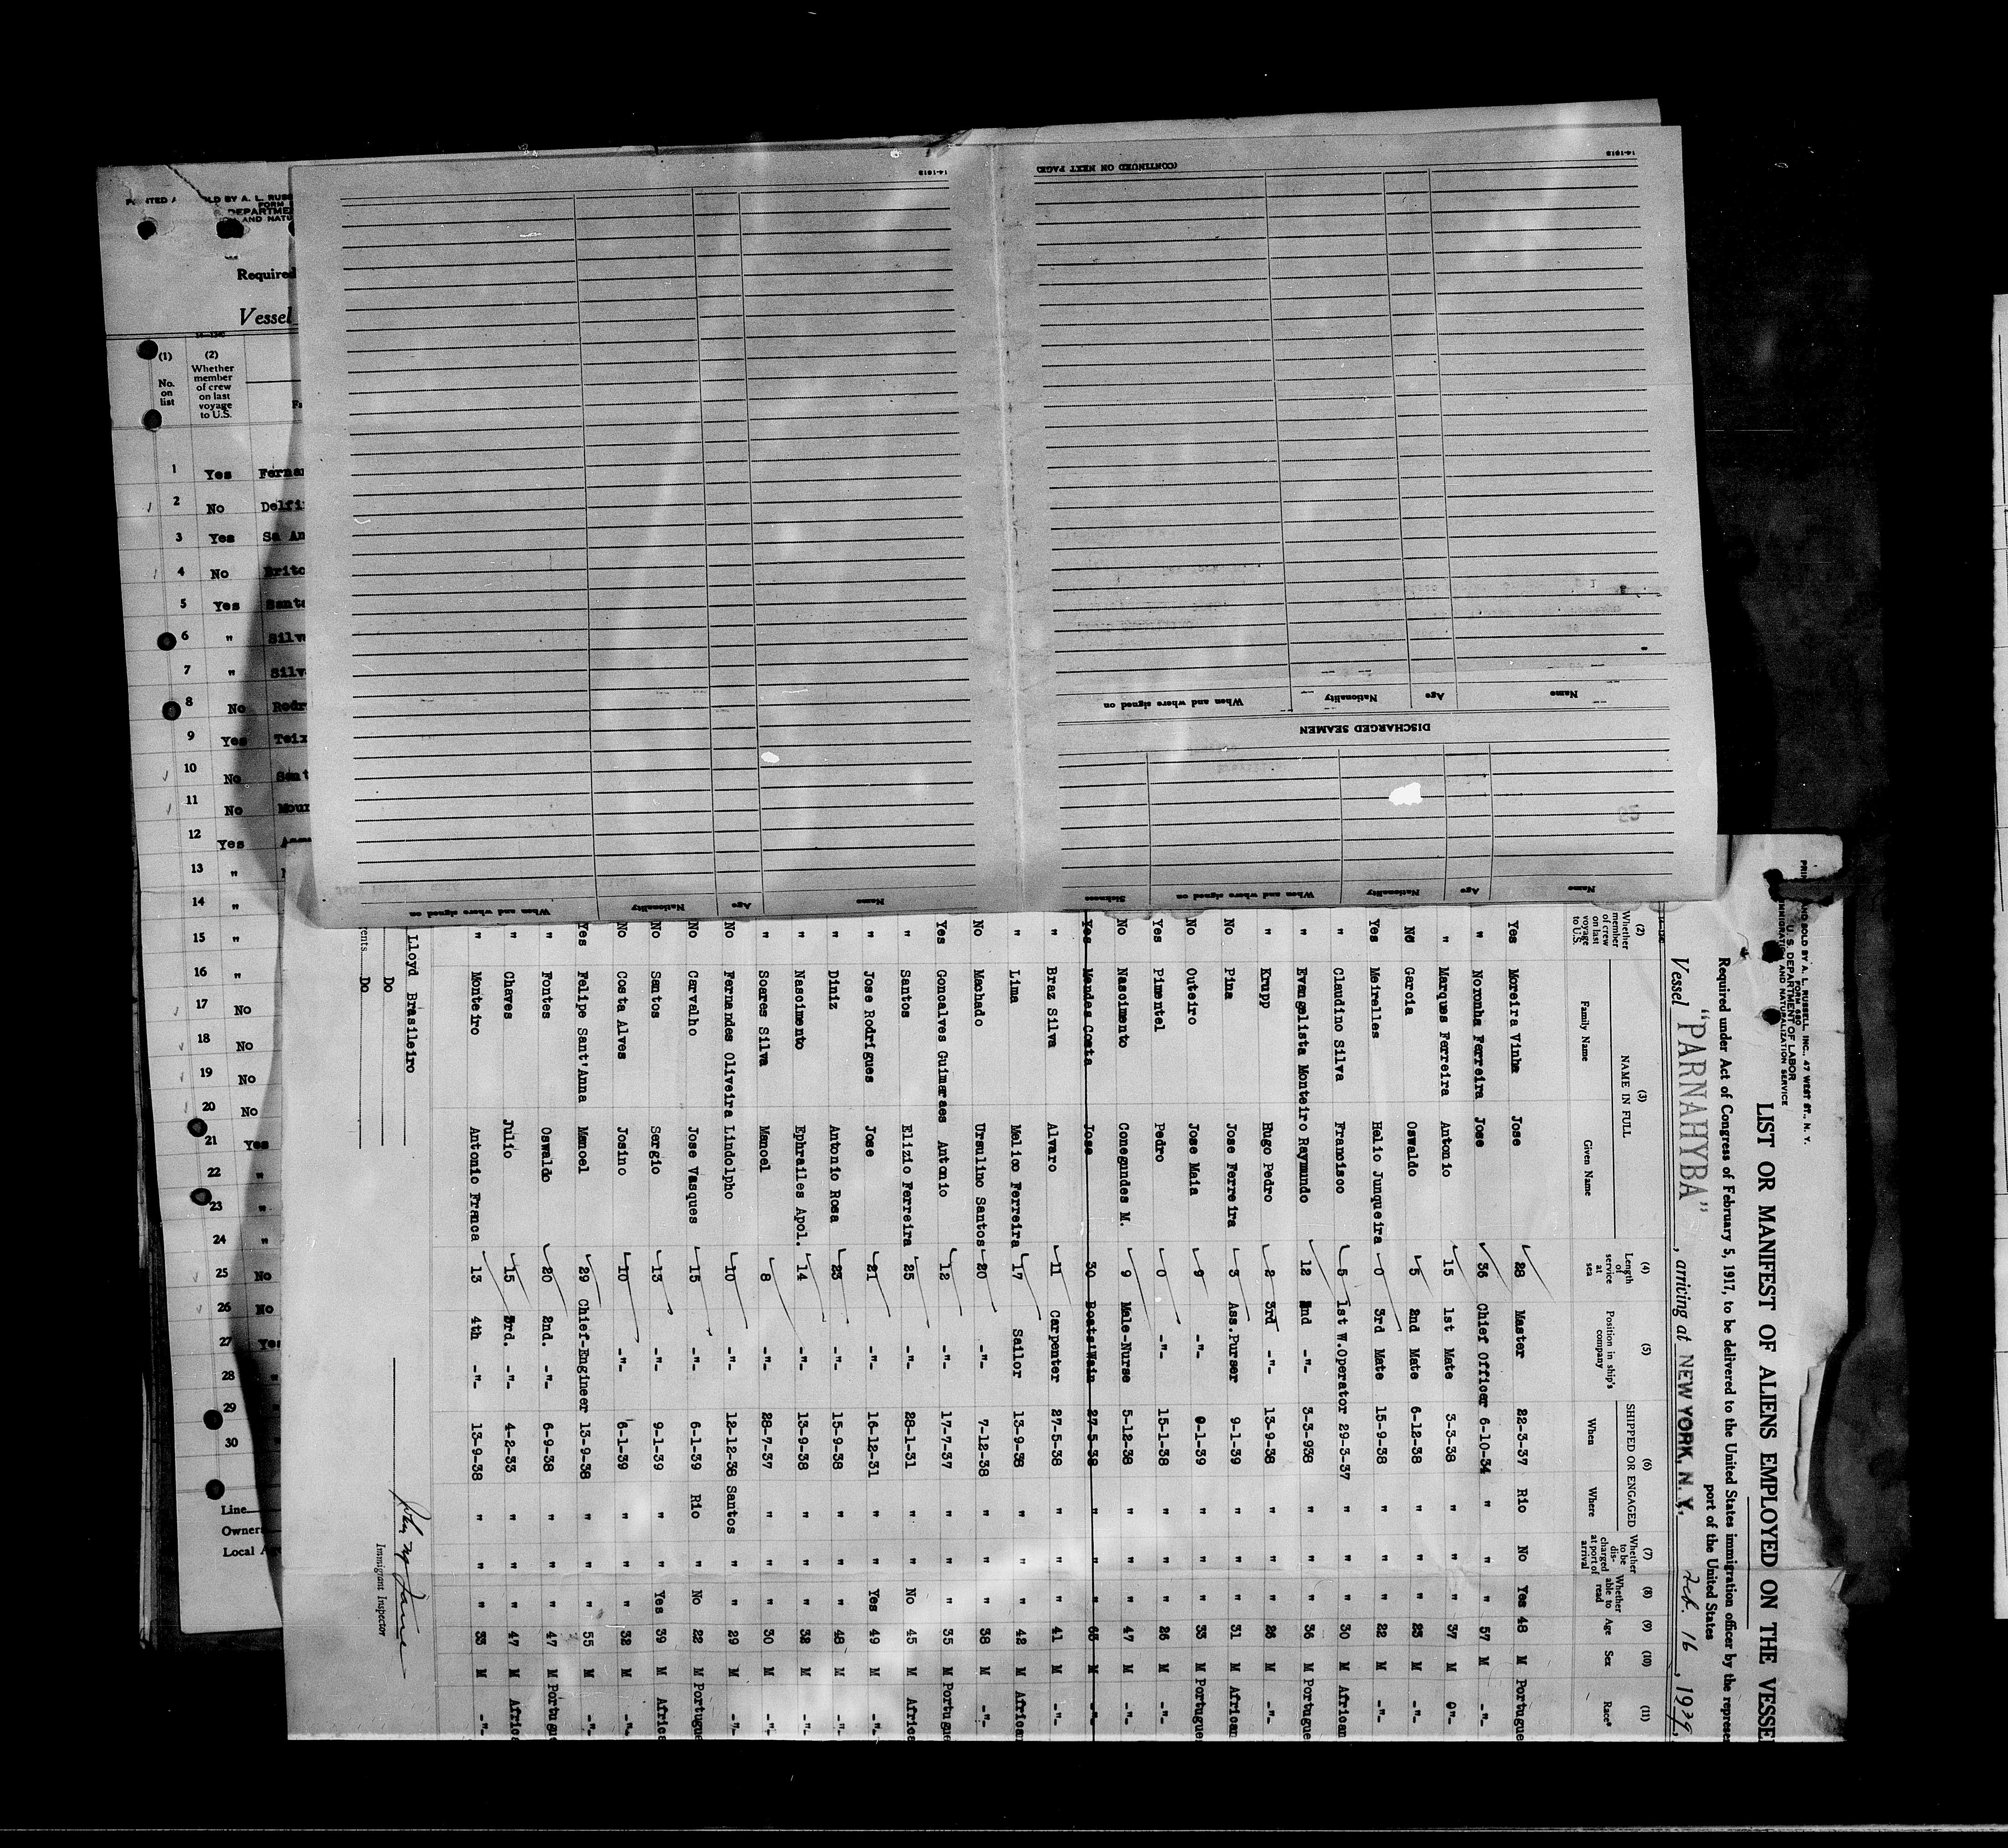 PRINTED AND SOLD BY A. L. RUSSELL, INC., 47 WEST ST., N. Y.
FORM 680
U. S. DEPARTMENT OF LABOR
IMMIGRATION AND NATURALIZATION SERVICE
LIST OR MANIFEST OF ALIENS EMPLOYED ON THE VESSE
Required under Act of Congress of February 5, 1917, to be delivered to the United States immigration officer by the represe
port of the United States
Vessel "PARNAHYBA", arriving at NEW YORK N.Y. Feb. 16, 1939,
(2) Whether member of crew on last voyage to U.S. (3) NAME IN FULL Family Name Given Name (4) Length of service at sea (5) Position in ship's company (6) SHIPPED OR ENGAGED When Where (7) Whether to be discharged at port of arrival (8) Whether able to read (9) Age (10) Sex (11) Race*
Yes Moreira Vinha Jose 28 Master 22-3-37 Rio No Yes 48 M Portugue
" Noronha Ferreira Jose 36 Chief Officer 6-10-34 " " " 57 M -"-
" Marques Ferreira Antonio 15 1st Mate 3-3-38 " " " 37 M -"-
No Garcia Oswaldo 5 2nd Mate 6-12-38 " " " 23 M -"-
Yes Meirelles Helio Junqueira 0 3rd Mate 15-9-38 " " " 22 M -"-
" Claudino Silva Francisco 5 1st W.Operator 29-3-37 " " " 30 M African
" Evangelista Monteiro Raymundo 12 2nd -"- 3-3-938 " " " 36 M Portugue
" Krupp Hugo Pedro 2 3rd -"- 13-9-38 " " " 26 M -"-
No Pina Jose Ferreira 3 Ass.Purser 9-1-39 " " " 31 M African
No Outeiro Jose Maia 9 -"- 9-1-39 " " " 33 M Portugue
Yes Pimentel Pedro 0 -"- 15-1-38 " " " 26 M -"-
No Nascimento Conegundes M. 9 Male-Nurse 5-12-38 " " " 47 M -"-
Yes Mendes Costa Jose 30 Boats'Wain 27-5-38 " " " 65 M -"-
" Braz Silva Alvaro 11 Carpenter 27-5-38 " " " 41 M -"-
" Lima Melico Ferreira 17 Sailor 13-9-38 " " " 42 M African
No Machado Ursulino Santos 20 -"- 7-12-38 " " " 38 M -"-
Yes Goncalves Guimaraes Antonio 12 -"- 17-7-37 " " " 35 M Portugue
" Santos Elizio Ferreira 25 -"- 28-1-31 " " No 45 M Africa
" Jose Rodrigues Jose 21 -"- 16-12-31 " " Yes 49 M -"-
" Diniz Antonio Rosa 23 -"- 15-9-38 " " " 48 M -"-
" Nascimento Ephrailes Apol. 14 -"- 13-9-38 " " " 32 M -"-
" Soares Silva Manoel 8 -"- 28-7-37 " " " 30 M -"-
No Fernandes Oliveira Lindolpho 10 -"- 12-12-38 Santos " " 29 M -"-
No Carvalho Jose Vasques 15 -"- 6-1-39 Rio " No 22 M Portugue
No Santos Sergio 13 -"- 9-1-39 " " Yes 39 M Africa
No Costa Alves Josino 10 -"- 6-1-39 " " " 32 M -"-
Yes Felipe Sant'Anna Manoel 29 Chief-Engineer 13-9-38 " " " 55 M -"-
" Fontes Oswaldo 20 2nd. -"- 6-9-38 " " " 47 M Portugu
" Chaves Julio 15 3rd. -"- 4-2-33 " " " 47 M Africa
" Monteiro Antonio Franca 13 4th -"- 13-9-38 " " " 33 M -"-
Lloyd Brasileiro
Do
Do
Immigrant Inspector
14-1618
(CONTINUED ON NEXT PAGE)
14-1618
Name Age Nationality When and where signed on
DISCHARGED SEAMEN
Name Age Nationality When and where signed on Sickness
Name Age Nationality When and where signed on
FORM
DEPARTMEN
AND NATU
Required
Vessel
(1) No. on list
(2) Whether member of crew on last voyage to U.S.
1 Yes Fernan
2 No Delfi
3 Yes Sa An
4 No Brito
5 Yes Santo
6 " Silva
7 " Silv
8 No Rodr
9 Yes Teix
10 No Sant
11 No Mour
12 Yes
13 "
14 "
15 "
16 "
17 No
18 No
19 No
20 No
21 Yes
22 "
23 "
24 "
25 No
26 No
27 Yes
28 "
29
30
Line
Owner
Local Ag